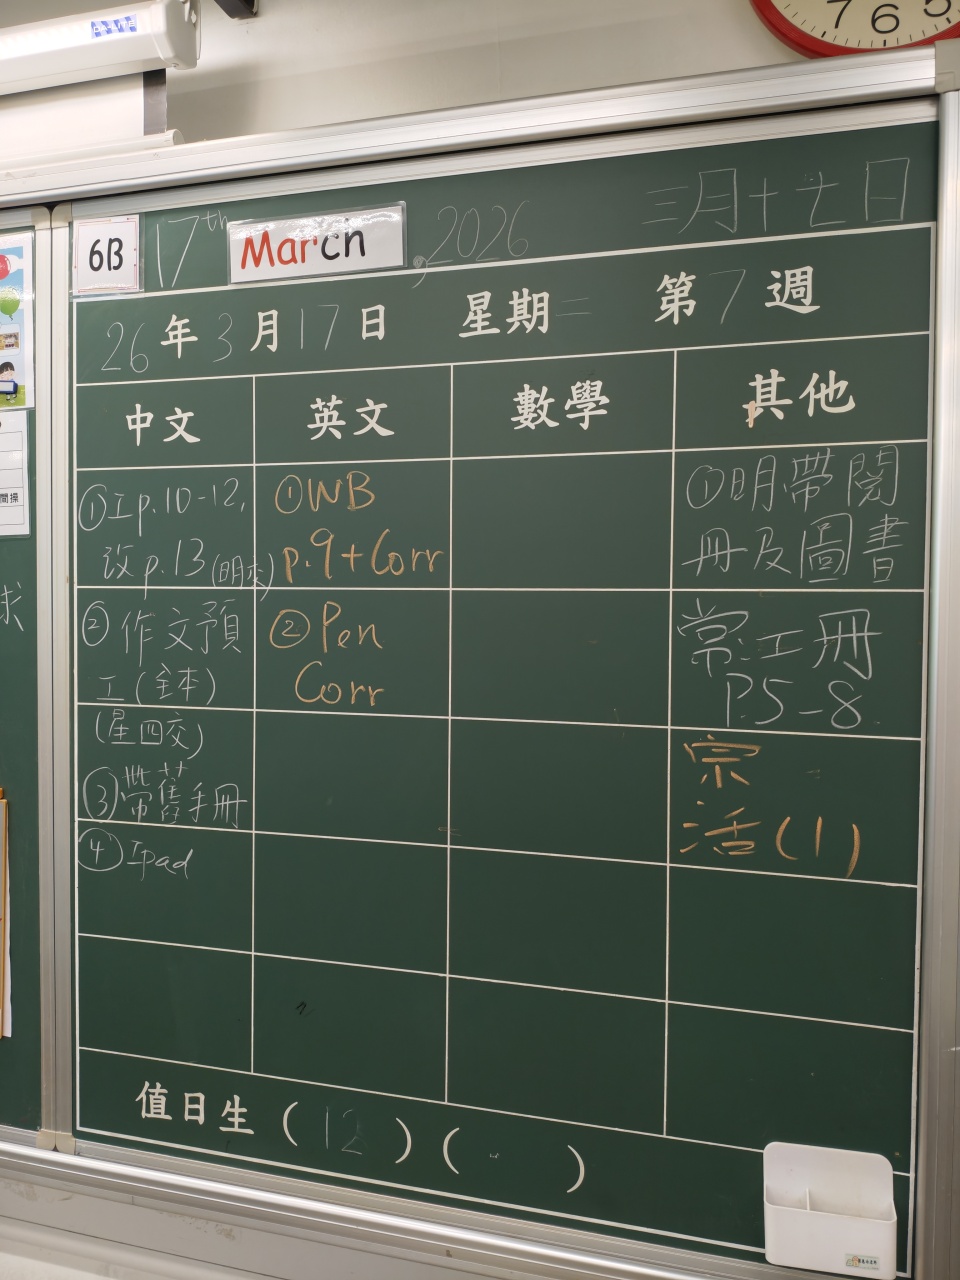 6B 17th March, 2026 三月十七日
26年3月17日 星期二 第7週
中文 英文 數學 其他
①工p.10-12,
改p.13(明交)
②作文預
工(全本)
(星四交)
③帶舊手冊
④Ipad
①WB
p.9+Corr
②Pen
Corr
①明帶閱
冊及圖書
常:工冊
P.5-8
宗
活(1)
值日生(12)( )
7 6 5
間操
求